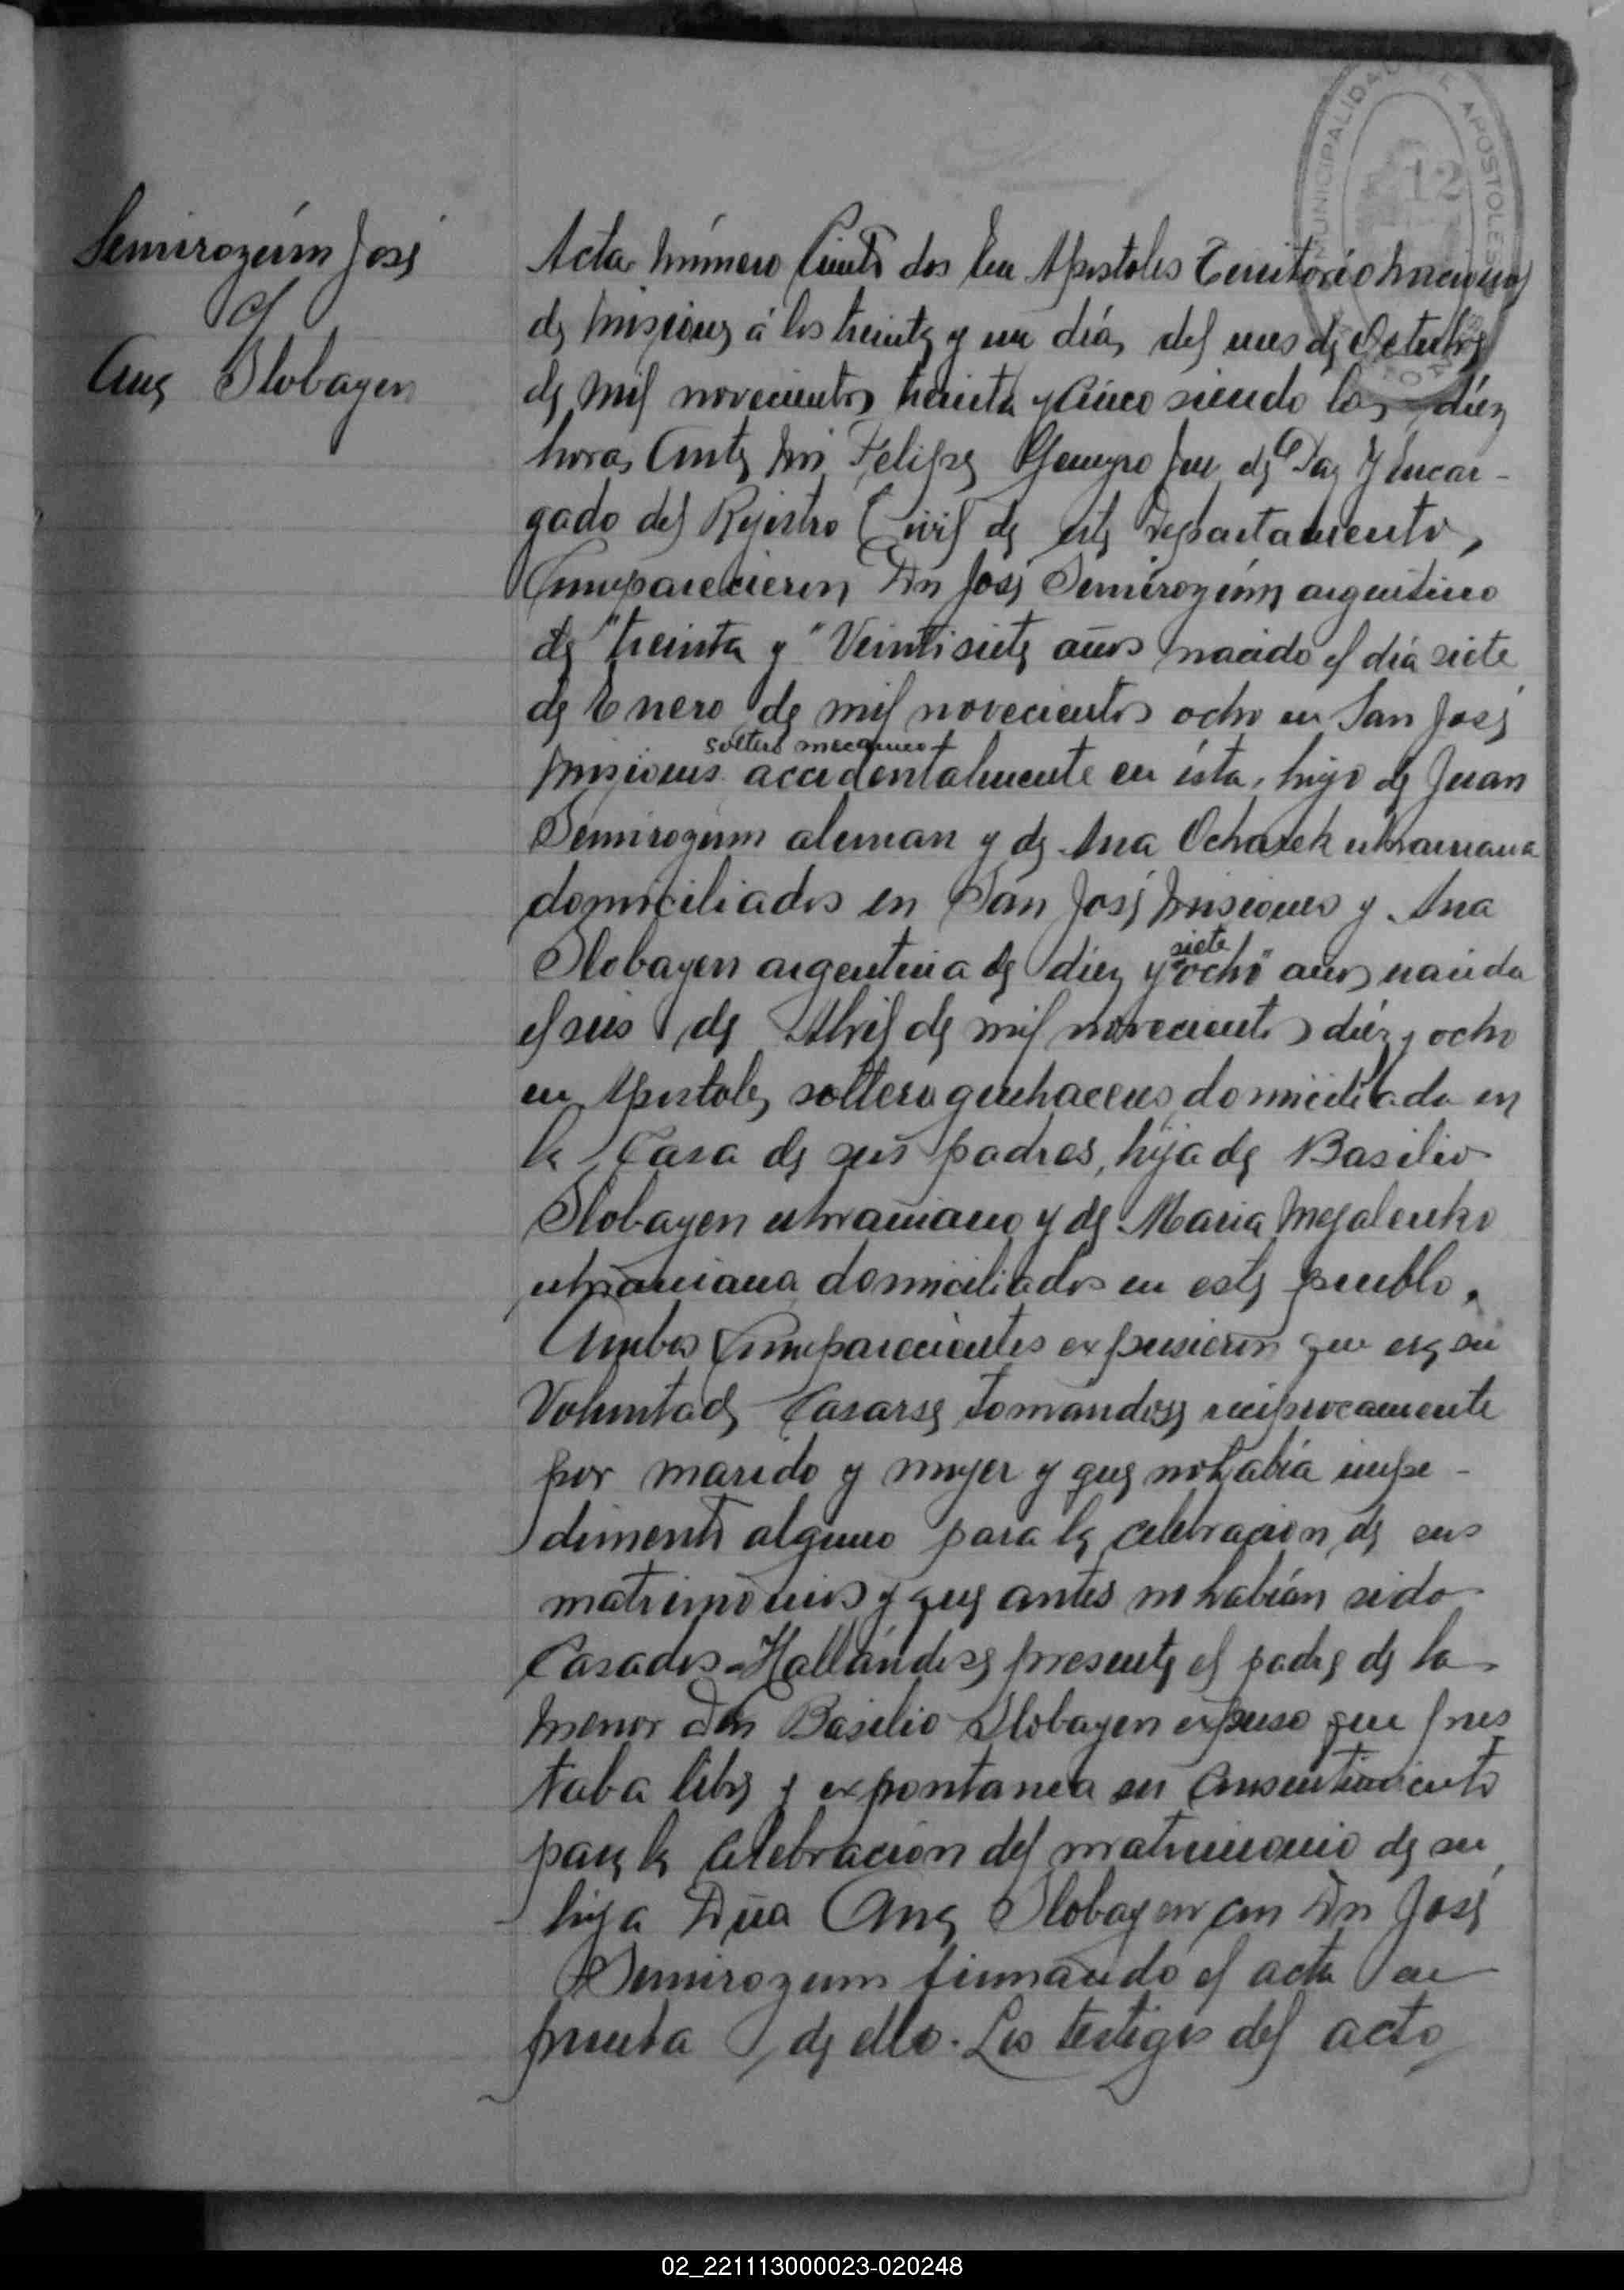 MUNICIPALIDAD DE APOSTOLES
12
Semirozúm José
c/
Ana Slobayen
Acta número Ciento dos En Apostoles Territorio nacional
de misiones á los treinta y un día, del mes de Octubre
de mil novecientos treinta y Cinco siendo las diéz
horas Ante mi Felipe Juez de Paz Y Encar-
gado del Rejistro Civil de este Departamento,
Comparecieron Dn José Semirozúm argentino
de "treinta y" Veintisiete años nacido el día siete
de Enero de mil novecientos ocho en San José
soltero mecanico
misiones accidentalmente en ésta, hijo de Juan
Semirozum aleman y de Ana Ocharek ukraniana
domiciliados en San José misiones y Ana
siete
Slobayen argentina de diez y "ocho" años nacida
el seis de Abril de mil novecientos diéz y ocho
en Apostoles, soltera quehaceres domiciliada en
la Casa de sus padres, hija de Basilio
Slobayen ukraniano y de Maria Megalenko
ukraniana domiciliados en este pueblo.
Ambos Comparecientes expusieron que era su
Voluntad Casarse tomándose reciprocamente
por marido y mujer y que no había impe-
dimento alguno para la celebración de sus
matrimonios y que antes no habían sido
Casados - Hallándose presente el padre de la
menor don Basilio Slobayen expuso que pres
taba libre y expontanea su Consentimiento
para la Celebración del matrimonio de su
hija Dña Ana Slobayen con Dn José
Semirozum firmando el acta en
prueba de ello. Los testigos del acto
02_221113000023-020248